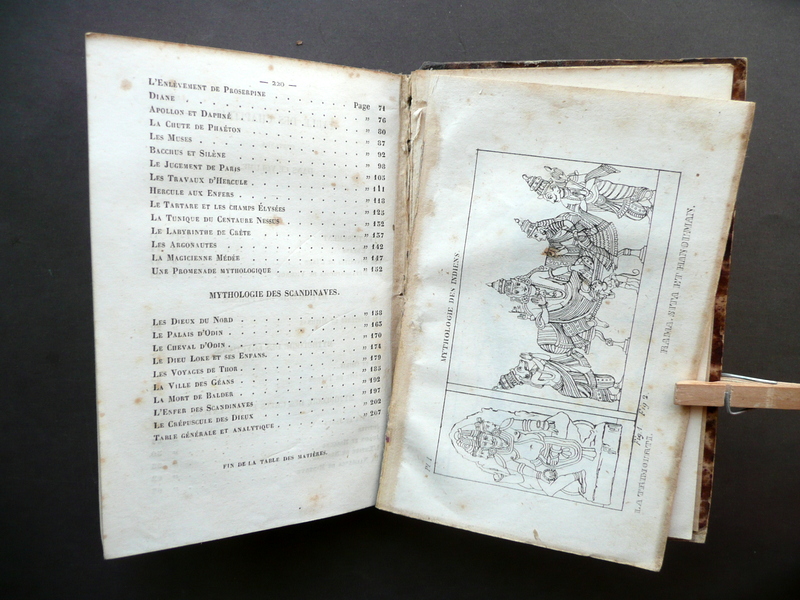 — 220 —
L'ENLÈVEMENT DE PROSERPINE . . . . . . Page 71
DIANE . . . . . . . . . . . . . . . . » 76
APOLLON ET DAPHNÉ . . . . . . . . . . » 80
LA CHUTE DE PHAÉTON . . . . . . . . . » 87
LES MUSES . . . . . . . . . . . . . . » 92
BACCHUS ET SILÈNE . . . . . . . . . . » 98
LE JUGEMENT DE PARIS . . . . . . . . . » 105
LES TRAVAUX D'HERCULE . . . . . . . . » 111
HERCULE AUX ENFERS . . . . . . . . . . » 118
LE TARTARE ET LES CHAMPS ÉLYSÉES . . . » 125
LA TUNIQUE DU CENTAURE NESSUS . . . . » 132
LE LABYRINTHE DE CRÈTE . . . . . . . . » 137
LES ARGONAUTES . . . . . . . . . . . . » 142
LA MAGICIENNE MÉDÉE . . . . . . . . . » 147
UNE PROMENADE MYTHOLOGIQUE . . . . . . » 152
MYTHOLOGIE DES SCANDINAVES.
LES DIEUX DU NORD . . . . . . . . . . » 158
LE PALAIS D'ODIN . . . . . . . . . . . » 165
LE CHEVAL D'ODIN . . . . . . . . . . . » 170
LE DIEU LOKE ET SES ENFANS. . . . . . » 174
LES VOYAGES DE THOR . . . . . . . . . » 179
LA VILLE DES GÉANS . . . . . . . . . . » 185
LA MORT DE BALDER . . . . . . . . . . » 192
L'ENFER DES SCANDINAVES . . . . . . . » 197
LE CRÉPUSCULE DES DIEUX . . . . . . . » 202
TABLE GÉNÉRALE ET ANALYTIQUE . . . . . » 207
FIN DE LA TABLE DES MATIÈRES.
MYTHOLOGIE DES INDIENS
Pl. 1
Fig. 1. Fig. 2.